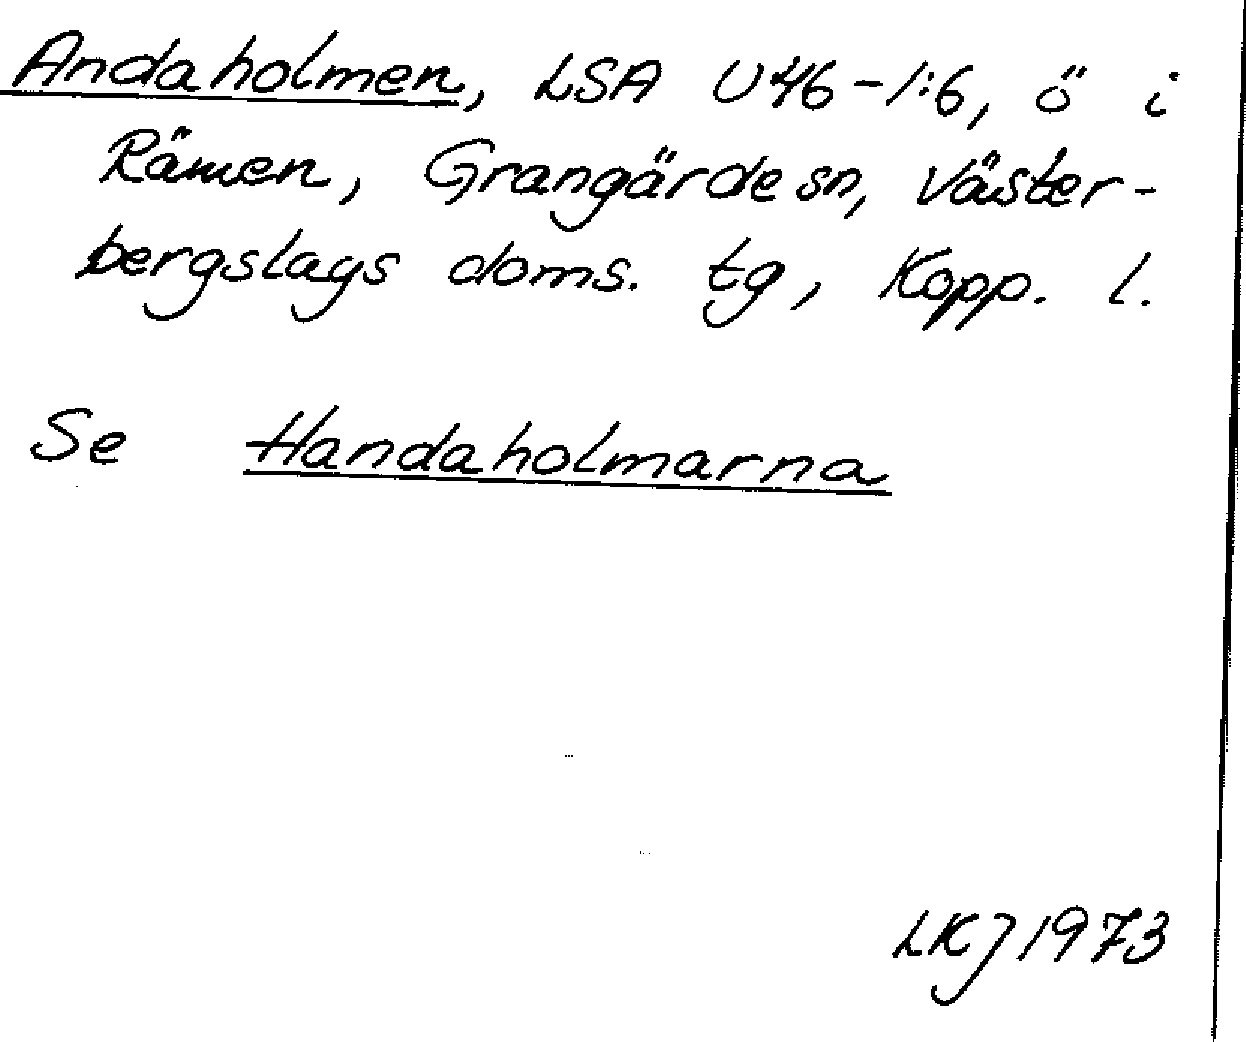 Andaholmen, LSA U46-1:6, ö i
Rämen, Grangärde sn, Väster-
bergslags doms. tg, Kopp. l.
Se Handaholmarna
LKJ 1973